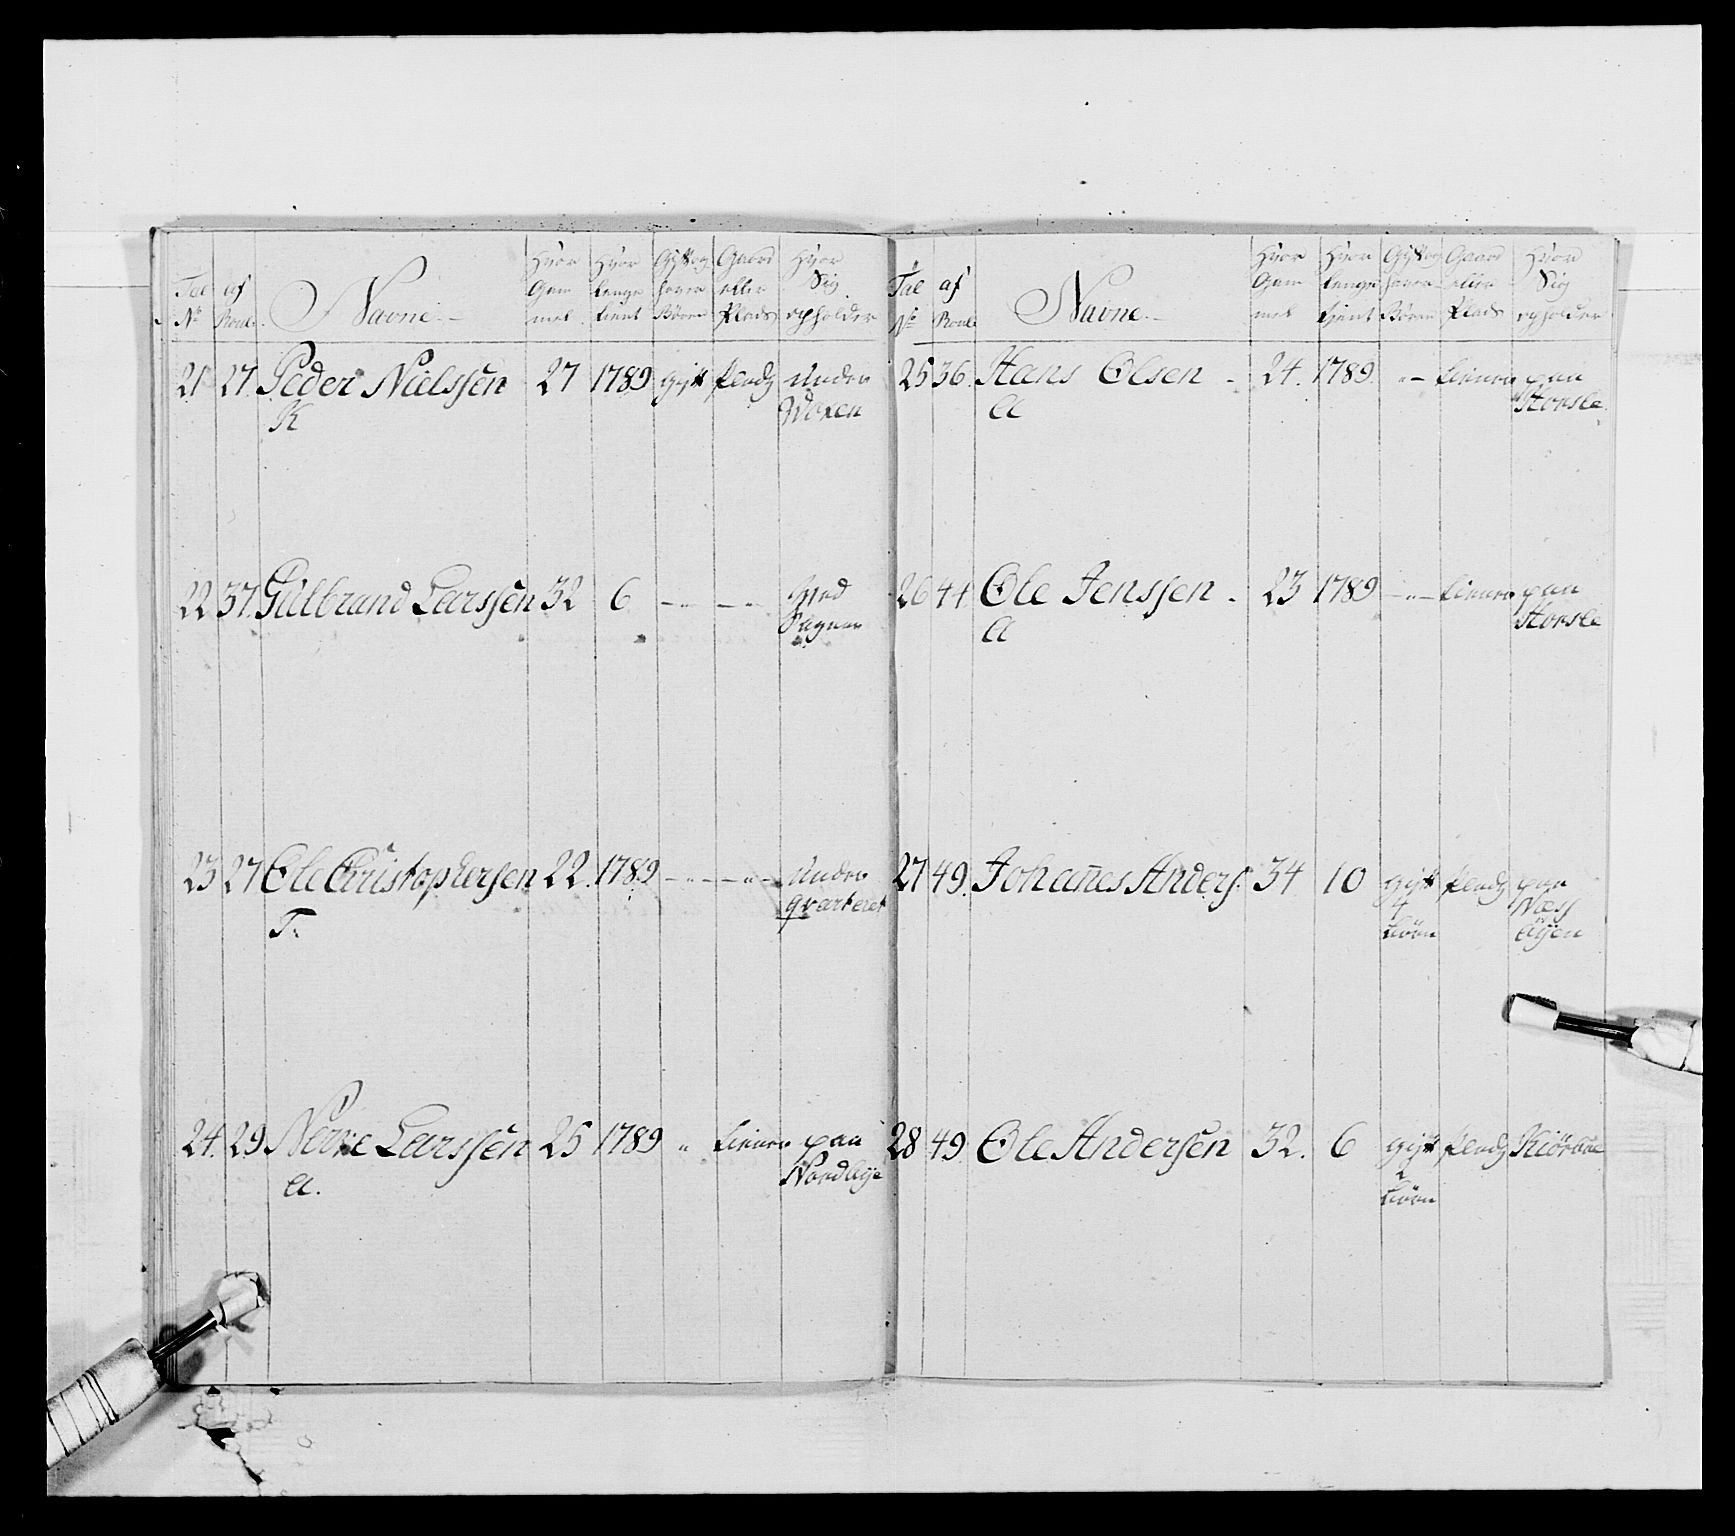 Tal No af Roul. Navne Hvor Gam mel Hvor lenge tient Gift og haver Børn Gaard eller Plads Hvor Sig opholder
21 27. Peder Nielssen 27 1789 gift Plads under Woxen
K
22 37. Gulbrand Larssen 32 6 - " - - " - ved Sagner
23 27 Ole Christophersen 22. 1789 - " - - " - under qvarteret
T.
24. 29. Larssen 25 1789 " tiener paa Nordbye
A.
Tal No af Roul Navne Hvor Gam mel Hvor lenge tient Gift og haver Børn Gaard eller Plads Hvor Sig opholder
25 36. Hans Olsen - 24. 1789. " - tiener paa Horsle
A
26 44. Ole Jenssen - 23 1789 - " - tiener paa Horsle
A
27 49. Johañes Anders: 34 10 gift 4 Børn Plads paa Næss Øÿen
28 49. Ole Andersen 32. 6 gift 2 Børn Plads Kiørboe